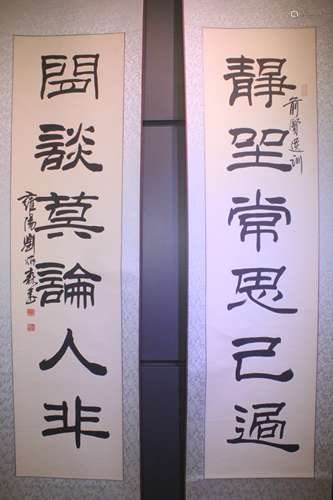 靜坐常思己過
前賢遺訓
閒談莫論人非
雍陽劉炳森書